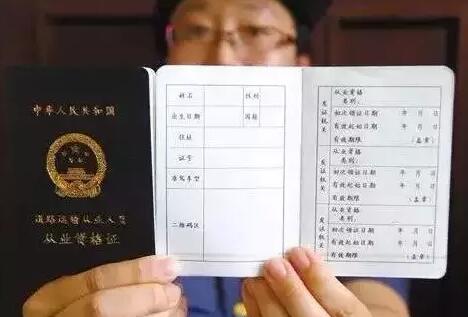 中华人民共和国
道路运输从业人员
从业资格证
姓名
性别
出生日期
国籍
住址
证号
准驾车型
二维码区
发证机关
从业资格
类别:
初次领证日期 年 月 日
有效起始日期 年 月 日
有效期限 (盖章)
发证机关
从业资格
类别:
初次领证日期 年 月 日
有效起始日期 年 月 日
有效期限 (盖章)
发证机关
从业资格
类别:
初次领证日期 年 月 日
有效起始日期 年 月 日
有效期限 (盖章)